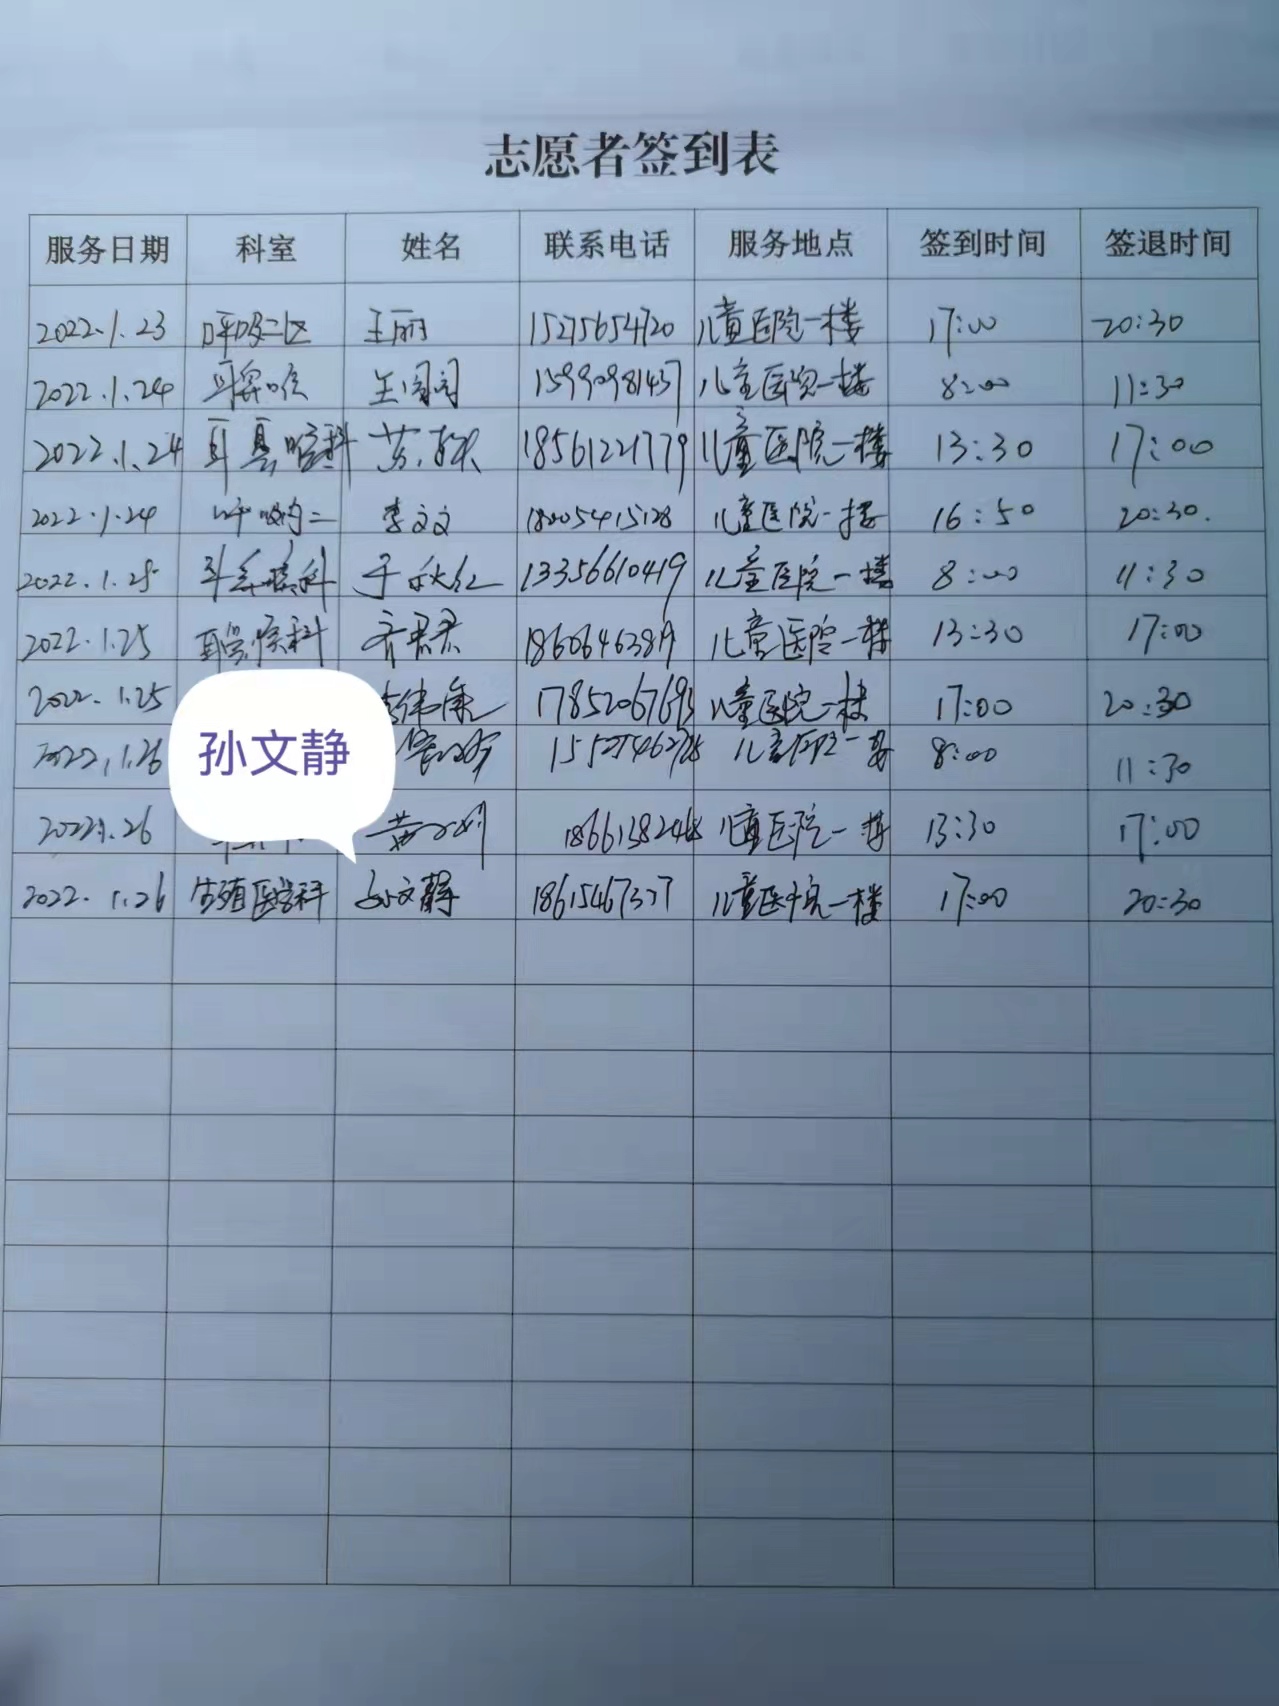 志愿者签到表
服务日期 科室 姓名 联系电话 服务地点 签到时间 签退时间
2022.1.23 呼吸二区 王丽 15275654720 儿童医院一楼 17:00 20:30
2022.1.24 耳鼻喉 王闺闺 15990981437 儿童医院一楼 8:00 11:30
2022.1.24 耳鼻喉科 18561221779 儿童医院一楼 13:30 17:00
2022.1.24 李文文 18005415128 儿童医院一楼 16:50 20:30.
2022.1.25 耳鼻喉科 于秋红 13356610419 儿童医院一楼 8:00 11:30
2022.1.25 耳鼻喉科 齐君君 儿童医院一楼 13:30 17:00
2022.1.25 儿童医院一楼 17:00 20:30
孙文静
2022.1.26 儿童医院一楼 8:00 11:30
2022.1.26 儿童医院一楼 13:30 17:00
2022.1.26 生殖医学科 孙文静 18615467377 儿童医院一楼 17:00 20:30